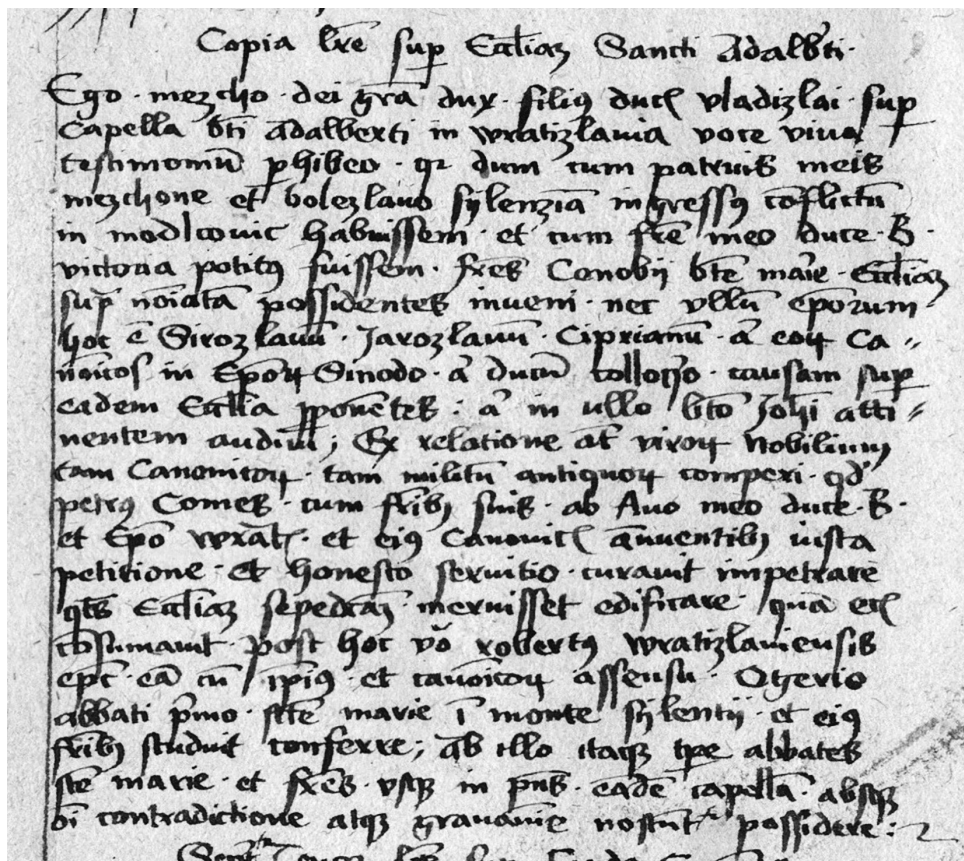 Copia lre sup Eccliam Sancti Adalbti
Ego · mezcho · dei gra dux · filius ducis vladizlai · sup
Capella bti Adalberti in wratizlavia voce viva
testimoniu phibeo · qr dum cum patruis meis
mezchone et bolezlavo sylenzia ingressus coflictu
in modlcovic habuissem · et cum fre meo duce · B ·
victoria potitus fuissem · fres Cenobij bte marie · Eccliam
sup noiata possidentes inveni · nec vllu eporum
hoc e Sirozlauu · Jarozlauu · Ciprianu · a eorum Ca〃
nonicos in Eporum Sinodo · a ducu colloqio · causam sup
eadem Ecclia pponetes · a in ullo bto Johi atti〃
nentem audivi ; Ex relatione at virorum Nobilium
tam Canonicorum · tam militu antiquorum comperi · qd
petrus Comes · cum fribus suis · ab Avo meo duce · B ·
et Epo wratis · et eius Canonicis annuentibus iusta
petitione · et honesto servitio · curavit impetrare
qts Eccliam sepedcam · meruisset edificare · qua
cosumavit · post hoc vo robertus wratizlauiensis
epc · ea cu ipius · et canoicorum assensu · Ogerio
abbati pmo · scte marie i monte sylentij · et eius
fribus studuit conferre ; ab illo itaque tpe abbates
ste marie · et fres · vsque in pns · eade capella · absque
oi contradictione atque gravamie noscunt possidere :